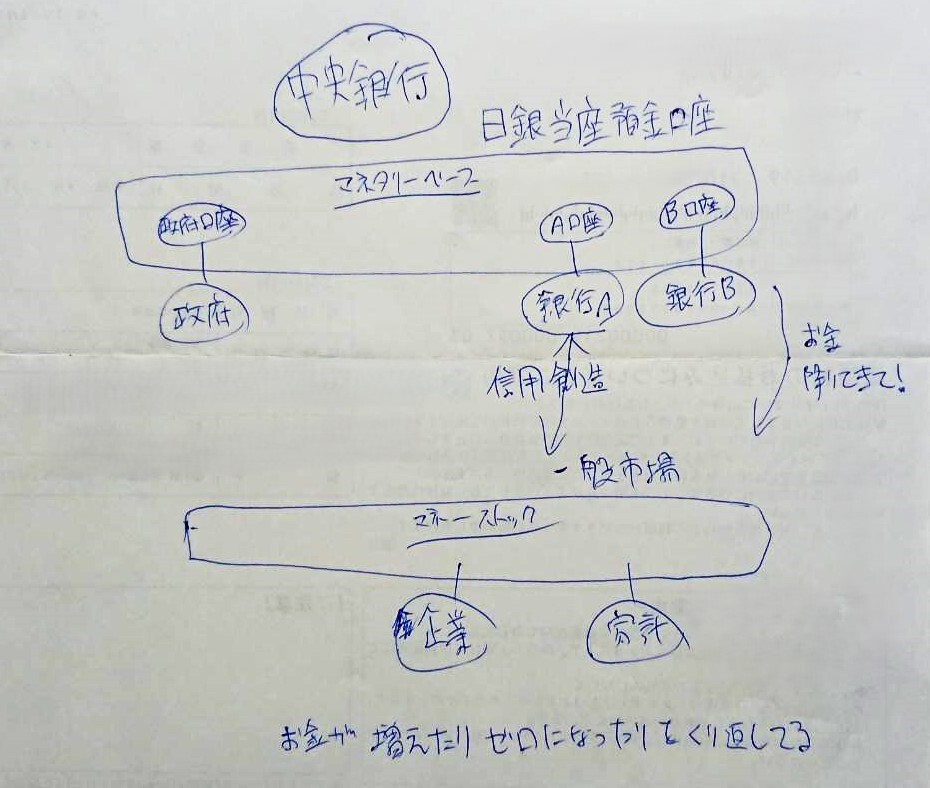 中央銀行
日銀当座預金口座
マネタリーベース
政府口座
A口座
B口座
政府
銀行A
銀行B
信用創造
お金
降りてきて!
一般市場
マネーストック
企業
家計
お金が 増えたり ゼロになったりをくり返してる